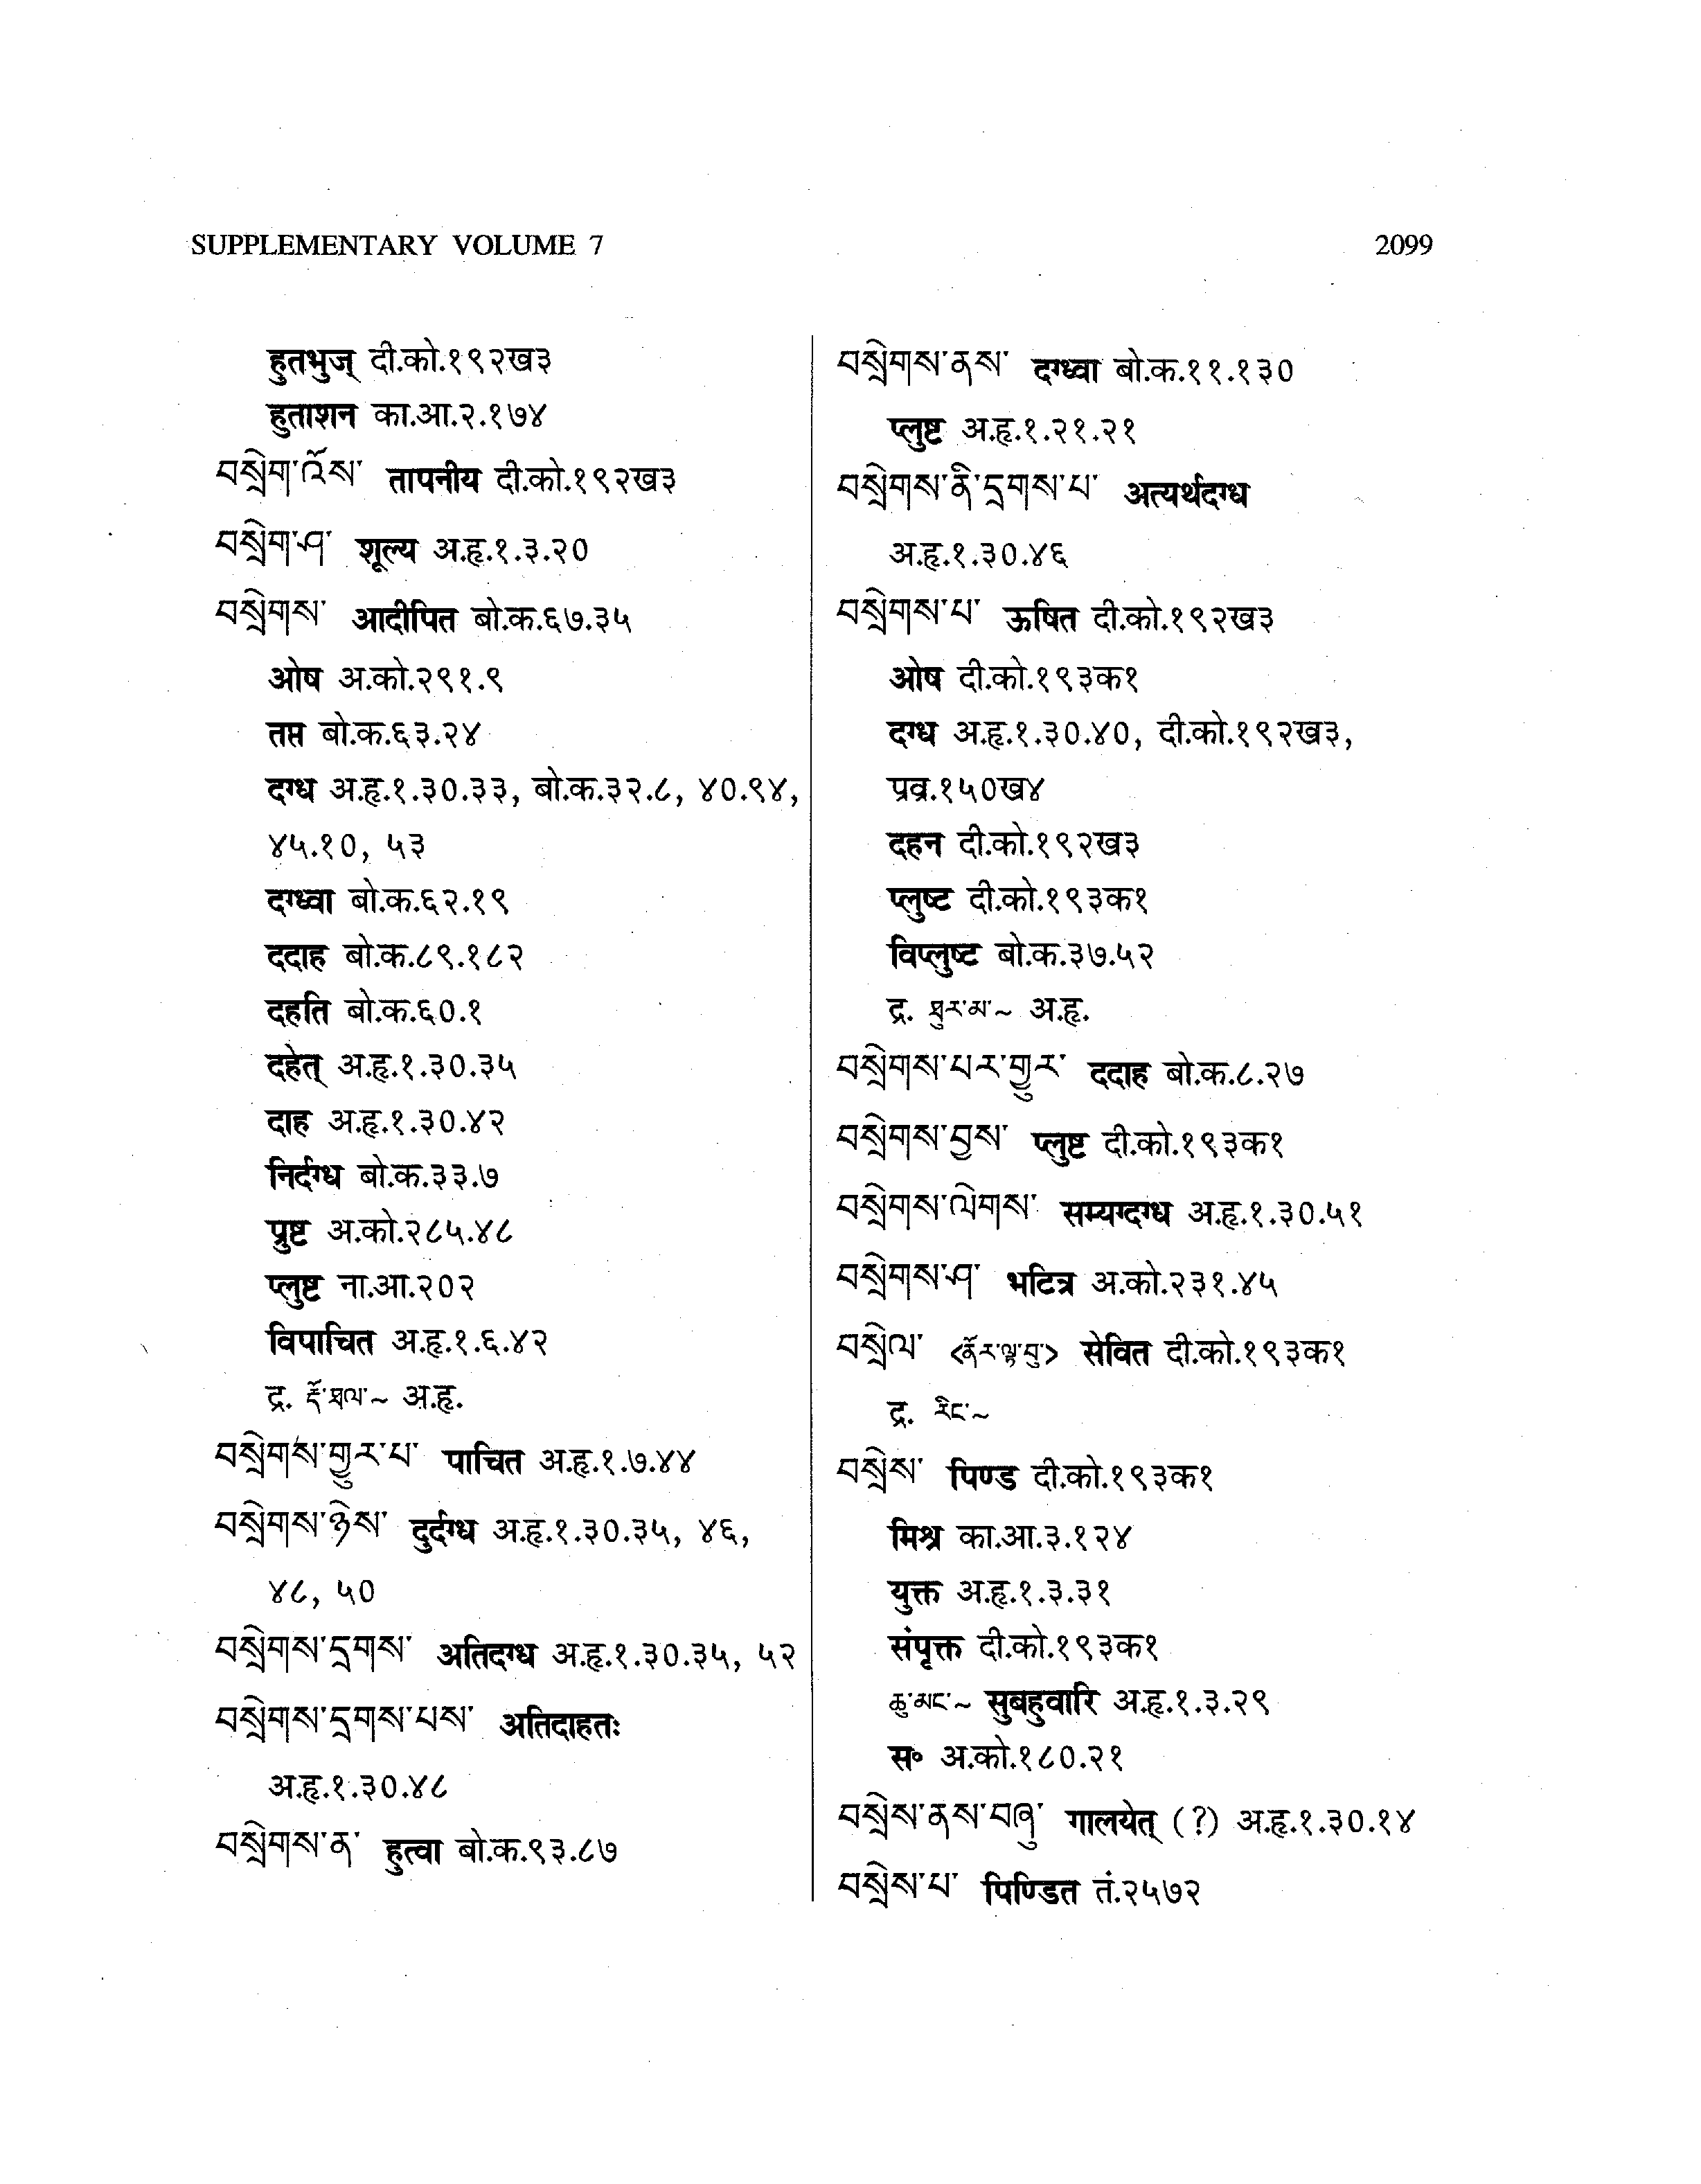 SUPPLEMENTARY VOLUME 7 2099
हुतभुज् दी.को.१९२ख३
हुताशन का.आ.२.१७४
བསྲེག་འོས་ तापनीय दी.को.१९२ख३
བསྲེག་ཤ་ शूल्य अ.हृ.१.३.२०
བསྲེགས་ आदीपित बो.क.६७.३५
ओष अ.को.२९१.९
तप्त बो.क.६३.२४
दग्ध अ.हृ.१.३०.३३, बो.क.३२.८, ४०.९४,
४५.१०, ५३
दग्ध्वा बो.क.६२.१९
ददाह बो.क.८९.१८२
दहति बो.क.६०.१
दहेत् अ.हृ.१.३०.३५
दाह अ.हृ.१.३०.४२
निर्दग्ध बो.क.३३.७
प्रुष्ट अ.को.२८५.४८
प्लुष्ट ना.आ.२०२
विपाचित अ.हृ.१.६.४२
द्र. རྡོ་ཐལ་~ अ.हृ.
བསྲེགས་གྱུར་པ་ पाचित अ.हृ.१.७.४४
བསྲེགས་ཉེས་ दुर्दग्ध अ.हृ.१.३०.३५, ४६,
४८, ५०
བསྲེགས་དྲགས་ अतिदग्ध अ.हृ.१.३०.३५, ५२
བསྲེགས་དྲགས་པས་ अतिदाहतः
अ.हृ.१.३०.४८
བསྲེགས་ན་ हुत्वा बो.क.९३.८७
བསྲེགས་ནས་ दग्ध्वा बो.क.११.१३०
प्लुष्ट अ.हृ.१.२१.२१
བསྲེགས་ནི་དྲགས་པ་ अत्यर्थदग्ध
अ.हृ.१.३०.४६
བསྲེགས་པ་ ऊषित दी.को.१९२ख३
ओष दी.को.१९३क१
दग्ध अ.हृ.१.३०.४०, दी.को.१९२ख३,
प्रव्र.१५०ख४
दहन दी.को.१९२ख३
प्लुष्ट दी.को.१९३क१
विप्लुष्ट बो.क.३७.५२
द्र. ཐུར་མ་~ अ.हृ.
བསྲེགས་པར་གྱུར་ ददाह बो.क.८.२७
བསྲེགས་བྱས་ प्लुष्ट दी.को.१९३क१
བསྲེགས་ལེགས་ सम्यग्दग्ध अ.हृ.१.३०.५१
བསྲེགས་ཤ་ भटित्र अ.को.२३१.४५
བསྲེལ་ <ནོར་ལྟ་བུ་> सेवित दी.को.१९३क१
द्र. རིང་~
བསྲེས་ पिण्ड दी.को.१९३क१
मिश्र का.आ.३.१२४
युक्त अ.हृ.१.३.३१
संपृक्त दी.को.१९३क१
ཆུ་མང་~ सुबहुवारि अ.हृ.१.३.२९
स॰ अ.को.१८०.२१
བསྲེས་ནས་བཞུ་ गालयेत् (?) अ.हृ.१.३०.१४
བསྲེས་པ་ पिण्डित तं.२५७२